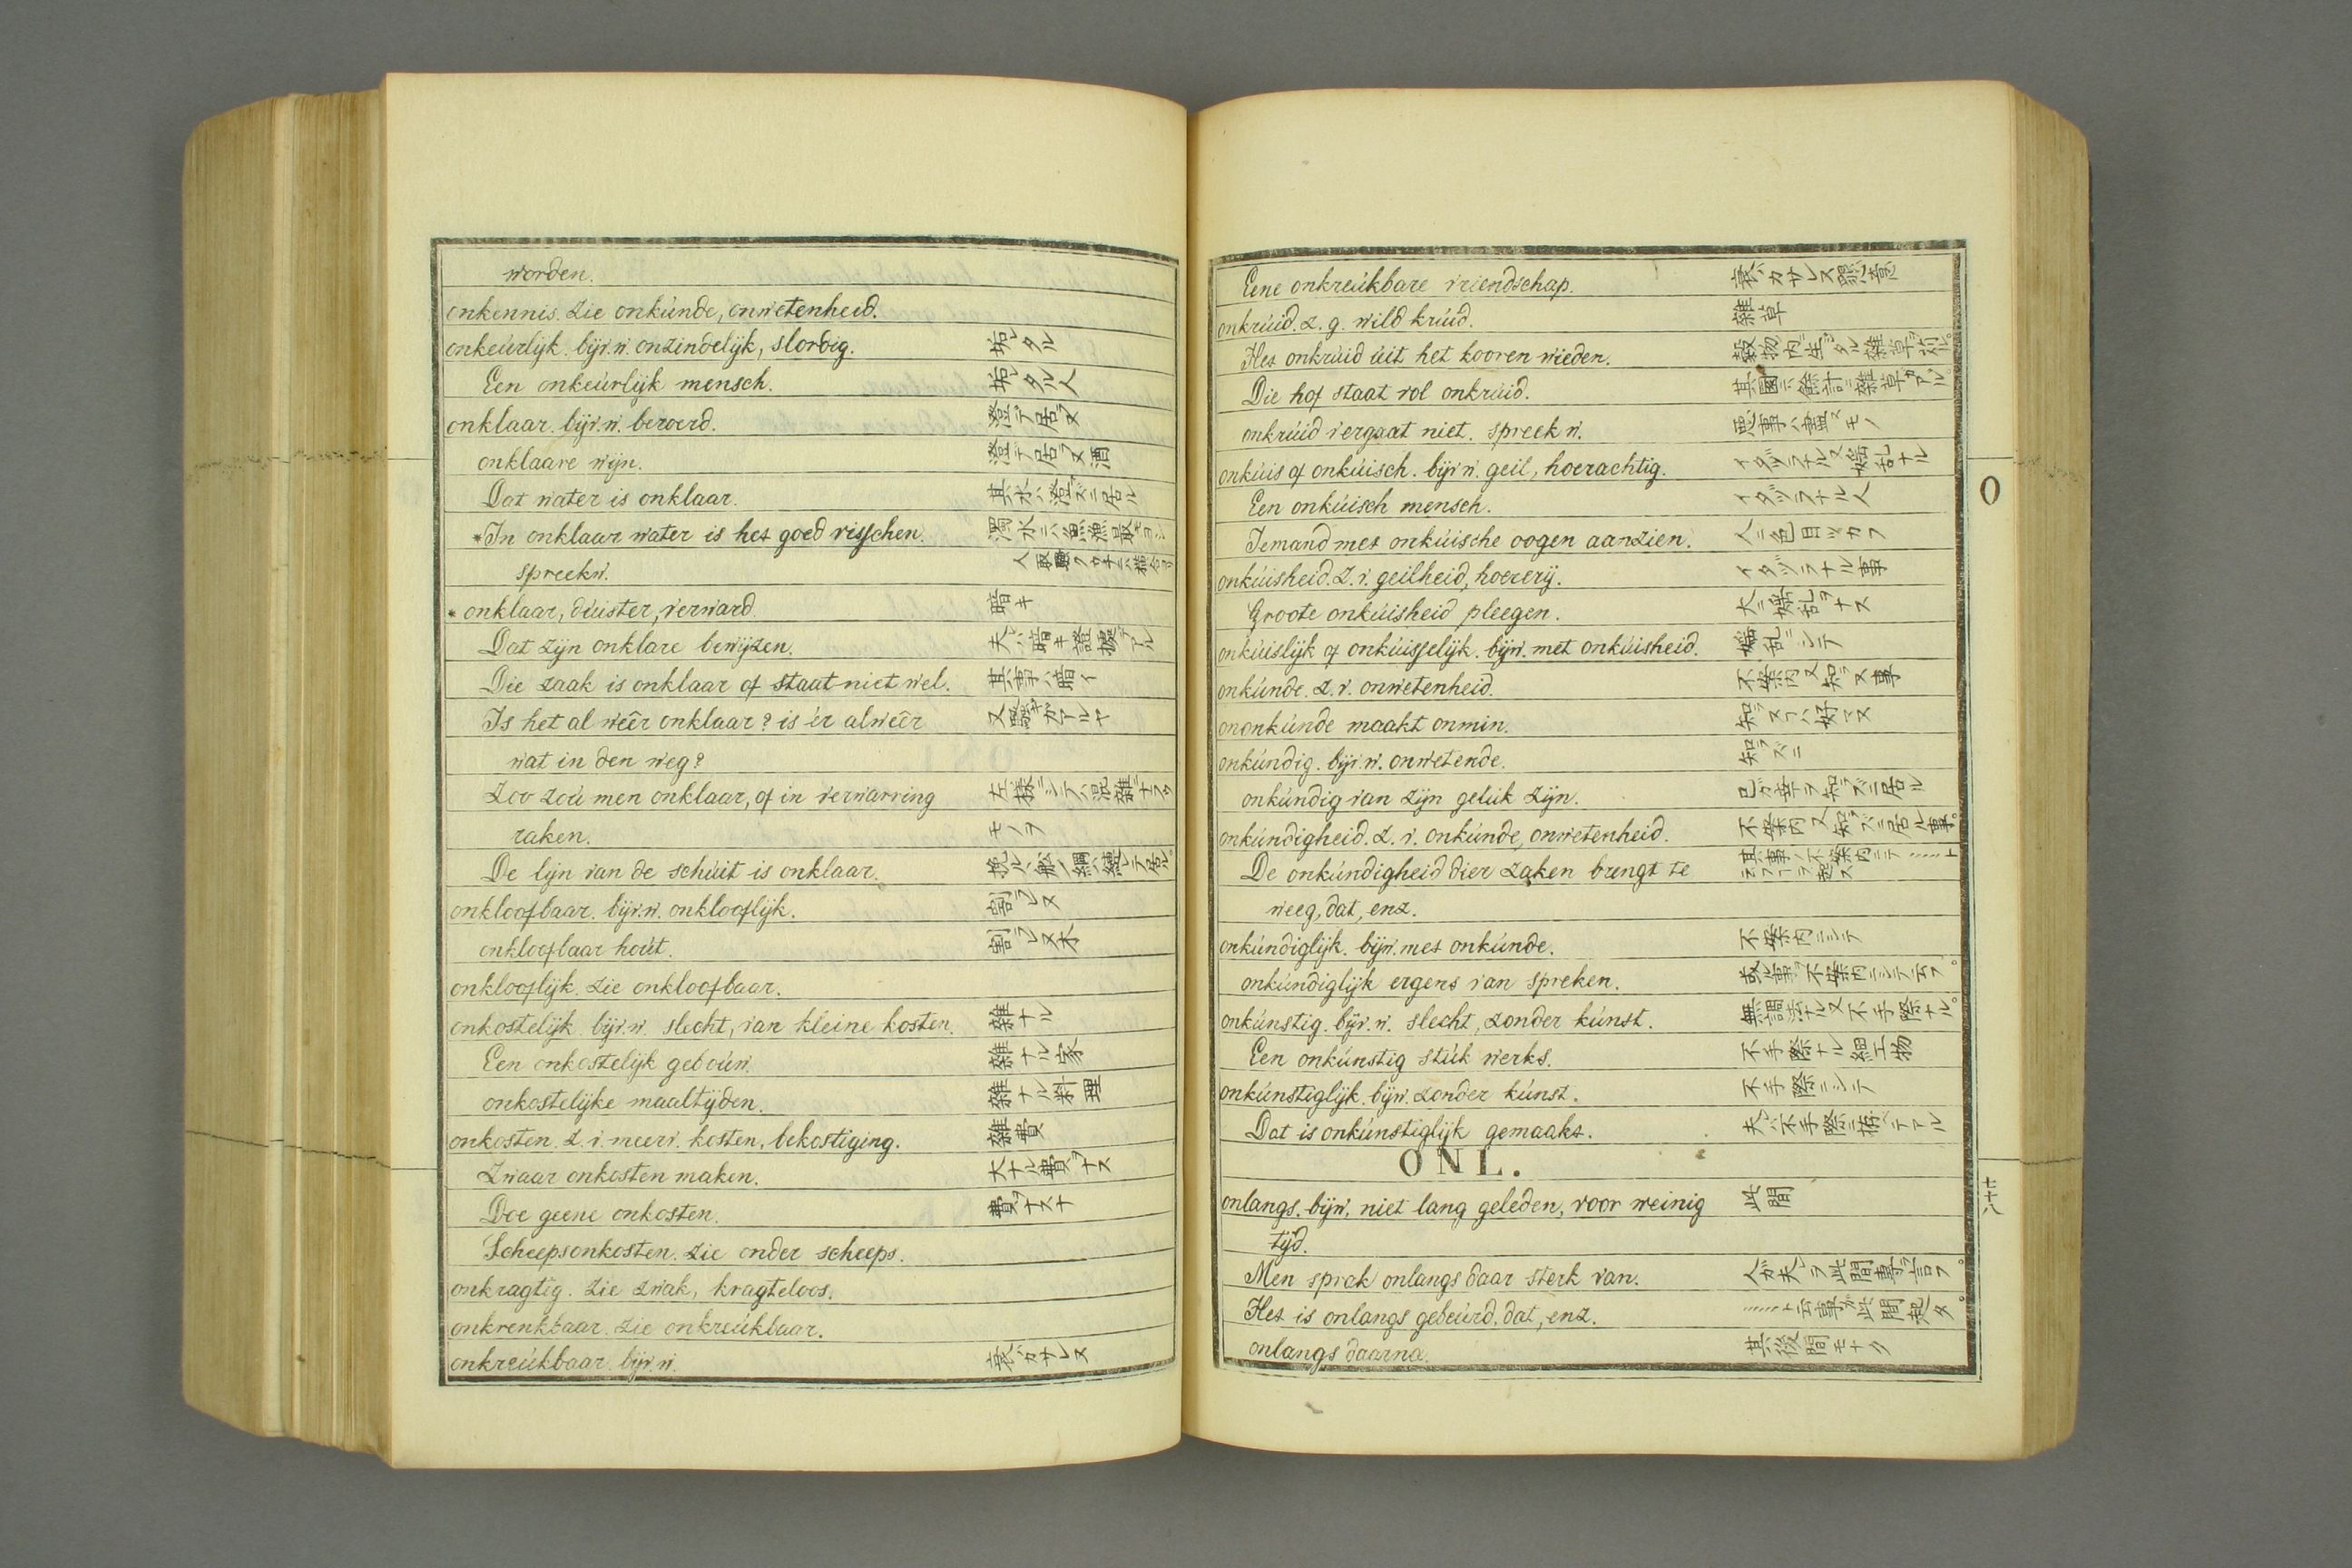 worden.
onkennis. zie onkúnde, onwetenheid.
onkeúrlijk. bijv. w. onzindelijk, slordig. 垢タル
Een onkeúrlijk mensch. 垢タル人
onklaar. bijv. w. beroerd. 澄テ居ヌ
onklaare wijn. 澄テ居ヌ酒
Dat water is onklaar. 其水ハ澄ズニ居ル
*In onklaar water is het goed visschen.
spreekw.
* onklaar, dúister, verward. 暗キ
Dat zijn onklare bewijzen. 夫ハ暗キ證據デアル
Die zaak is onklaar of staat niet wel. 其事ハ暗イ
Is het al wêêr onklaar? is ér alwêêr
wat in den weg?
Zoo zoú men onklaar, of in verwarring
raken. モノヲ
De lijn van de schúit is onklaar.
onkloofbaar. bijv. w. onklooflijk. 割レヌ
onkloofbaar hoút. 割レヌ木
onklooflijk. zie onkloofbaar.
onkostelijk. bijv. w. slecht, van kleine kosten. 雜ナル
Een onkostelijk geboúw. 雜ナル家
onkostelijke maaltijden. 雜ナル料理
onkosten. z. v. meerv. kosten, bekostiging. 雜費
Zwaar onkosten maken. 大ナル費ヲナス
Doe geene onkosten. 費ヲナスナ
Scheepsonkosten. zie onder scheeps.
onkragtig. zie zwak, kragteloos.
onkrenkbaar. zie onkreúkbaar.
onkreúkbaar. bijv. w. 衰ハカサレヌ
Eene onkreúkbare vriendschap. 衰ハカサレヌ懇意
onkrúid. z. g. wild krúid. 雜草
Het onkrúid úit het kooren wieden. 穀物内ニ生ジタル雜草ヲ苅ル。
Die hof staat vol onkrúid. 其園ニハ餘計ニ雜草ガアル。
onkrúid vergaat niet. spreekw. 悪事ハ盡ヌモノ
onkúis of onkúisch. bijv. w. geil, hoerachtig. イタヅラナル又婬乱ナル
Een onkúisch mensch. イタヅラナル人
Iemand met onkúische oogen aanzien. 人ニ色目ヅカフ
onkúisheid. z. v. geilheid, hoererij. イタヅラナル事
Groote onkúisheid pleegen. 大ニ婬乱ヲナス
onkúislijk of onkúisselijk. bijw. met onkúisheid. 婬乱ニシテ
onkúnde. z. v. onwetenheid. 不案内又知ラヌ事
ononkúnde maakt onmin.
onkúndig. bijv. w. onwetende. 知ラズニ
onkúndig van zijn geluk zijn. 己ガ幸ヲ知ラズニ居ル
onkúndigheid. z. v. onkúnde, onwetenheid. 不案内又知ラズニ居ル事。
De onkúndigheid dier zaken brengt te
weeg, dat, enz.
onkúndiglijk. bijw. met onkúnde. 不案内ニシテ
onkúndiglijk ergens van spreken. 或事ヲ不案内ニシテ云フ。
onkúnstig. bijv. w. slecht, zonder kúnst. 無調法ナル又不手際ナル。
Een onkúnstig stúk werks. 不手際ナル細工物
onkúnstiglijk. bijw. zonder kúnst. 不手際ニシテ
Dat is onkúnstiglijk gemaakt. 夫ハ不手際ニ拵ヘテアル
ONL.
onlangs. bijw. niet lang geleden, voor weinig 此間
tijd.
Men sprak onlangs daar sterk van. 人ガ夫レヲ此間専ラ言フ。
Het is onlangs gebeúrd, dat, enz. ……ト云事ガ此間起タ。
onlangs daarna. 其後間モナク
O